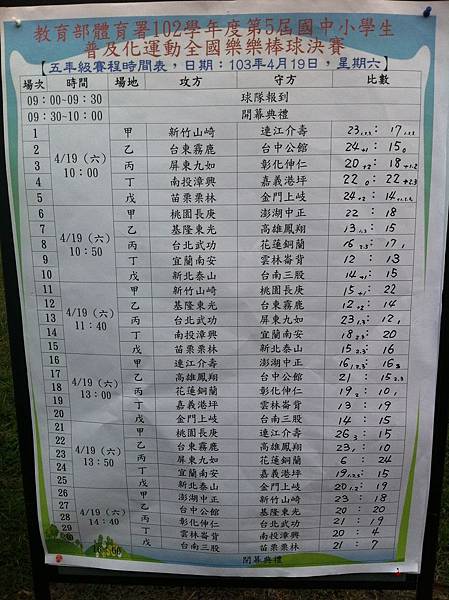 教育部體育署102學年度第5屆國中小學生
普及化運動全國樂樂棒球決賽
【五年級賽程時間表，日期：103年4月19日，星期六】
場次 時間 場地 攻方 守方 比數
09：00~09：30 球隊報到
09：30~10：00 開幕典禮
1 甲 新竹山崎 連江介壽 23 ： 17
2 4/19（六） 乙 台東霧鹿 台中公館 24 ： 15
3 10：00 丙 屏東九如 彰化伸仁 20 ： 18
4 丁 南投漳興 嘉義港坪 22 ： 22
5 戊 苗栗栗林 金門上岐 24 ： 14
6 甲 桃園長庚 澎湖中正 22 ： 18
7 4/19（六） 乙 基隆東光 高雄鳳翔 13 ： 15
8 10：50 丙 台北武功 花蓮銅蘭 16 ： 17
9 丁 宜蘭南安 雲林崙背 12 ： 13
10 戊 新北泰山 台南三股 14 ： 15
11 甲 新竹山崎 桃園長庚 15 ： 22
12 4/19（六） 乙 基隆東光 台東霧鹿 12 ： 14
13 11：40 丙 台北武功 屏東九如 23 ： 12
14 丁 南投漳興 宜蘭南安 18 ： 20
15 戊 苗栗栗林 新北泰山 15 ： 16
16 甲 連江介壽 澎湖中正 16 ： 16
17 4/19（六） 乙 高雄鳳翔 台中公館 21 ： 15
18 13：00 丙 花蓮銅蘭 彰化伸仁 19 ： 10
19 丁 嘉義港坪 雲林崙背 13 ： 19
20 戊 金門上岐 台南三股 14 ： 15
21 甲 桃園長庚 連江介壽 26 ： 15
22 4/19（六） 乙 台東霧鹿 高雄鳳翔 23 ： 10
23 13：50 丙 屏東九如 花蓮銅蘭 6 ： 24
24 丁 宜蘭南安 嘉義港坪 19 ： 15
25 戊 新北泰山 金門上岐 20 ： 19
26 甲 澎湖中正 新竹山崎 23 ： 18
27 4/19（六） 乙 台中公館 基隆東光 20 ： 20
28 14：40 丙 彰化伸仁 台北武功 21 ： 19
29 丁 雲林崙背 南投漳興 20 ： 4
30 戊 台南三股 苗栗栗林 21 ： 7
閉幕典禮